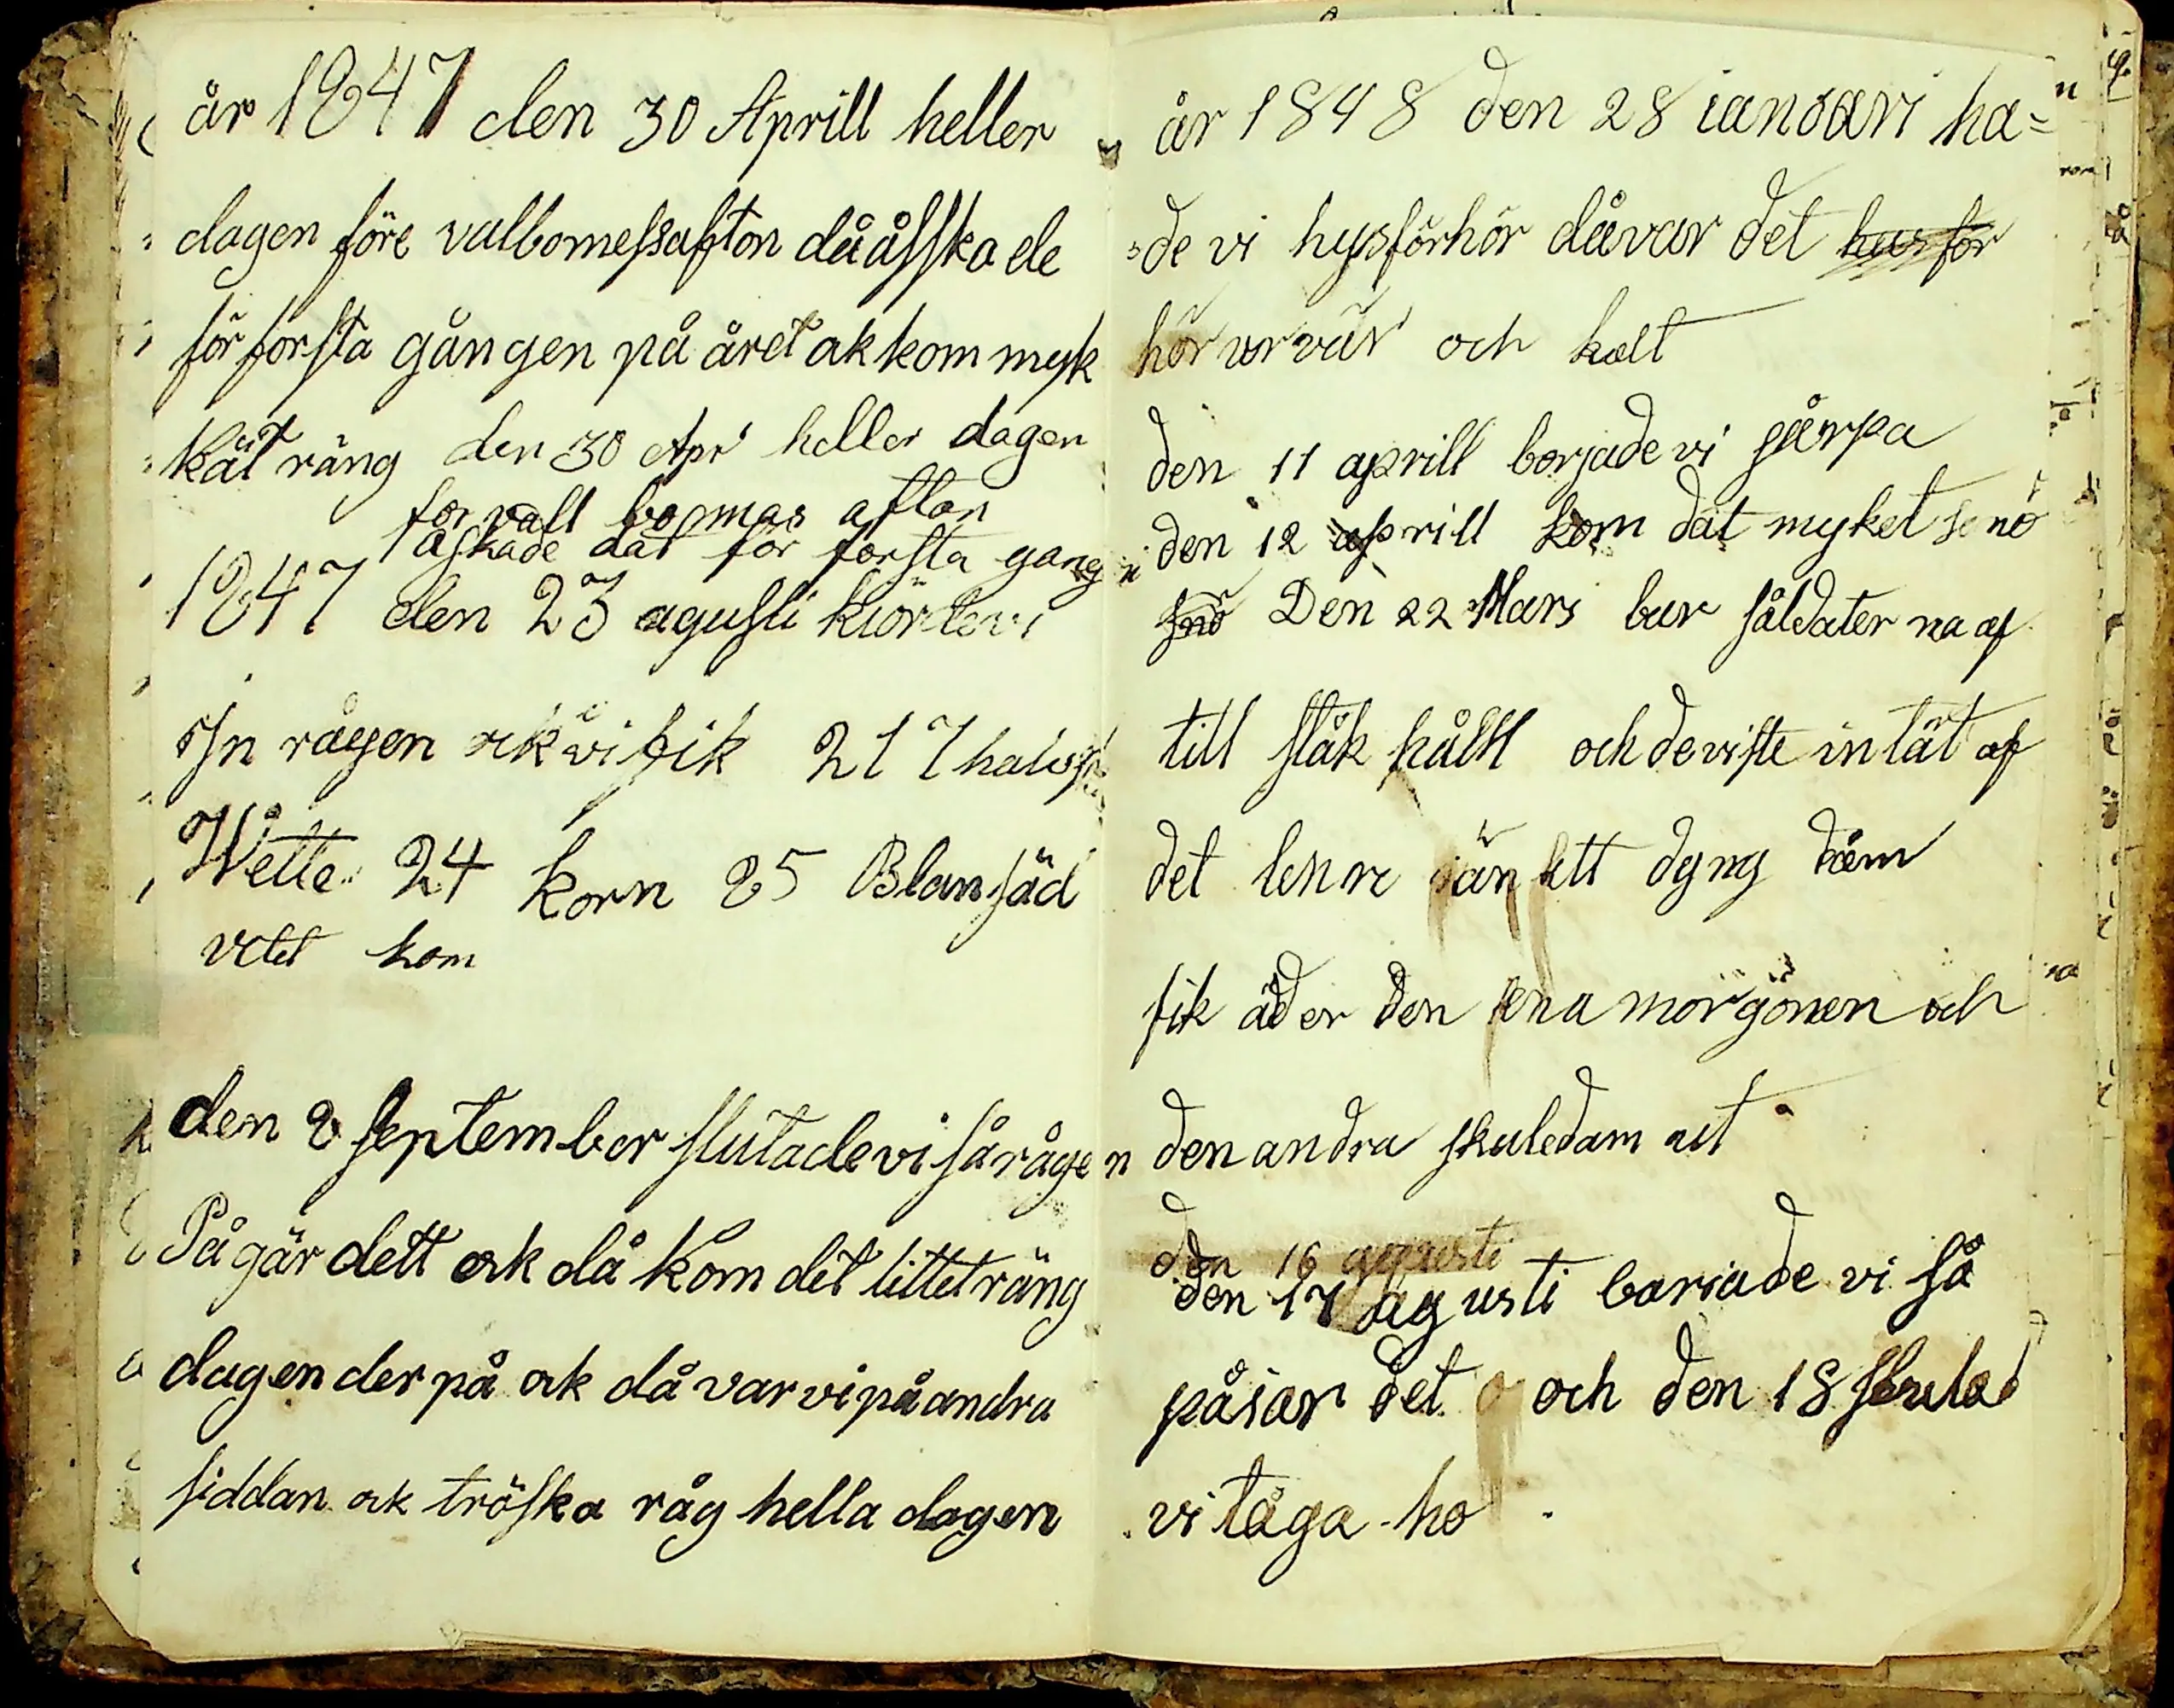 år 1847 den 30 Aprill heller
dagen före valbomessafton då åsska de
för första gången på året ak kom myk
kät räng den 30 Apr heller dagen
for vall bogmas aftan
åskade dät för forsta gang
1847 den 23 agusti kiörde vi
In rågen ak vi fik 217
Wette 24 korn 25 Blansäd
vetet kom
den 2 September slutade vi så rågen
På gär dett ak då kom det littet räng
dagen der på ak då var vi på andra
siddan ak tröska råg hella dagen
år 1848 den 28 ianuari ha=
=de vi hysförhör då var det husför
hör ur vär och kalt
den 11 aprill borjade vi
den 12 aprill kom dät myket senö
snö Den 22 Mars bar såldater na af
till ståk hålm och de viste in tät af
det än ett dyng däm
fik åder den ena morgönen och
den andra skule dam ut
den 16 agusti
den 17 agusti bariade vi så
på iar det och den 18 slutad
vi tåga ho